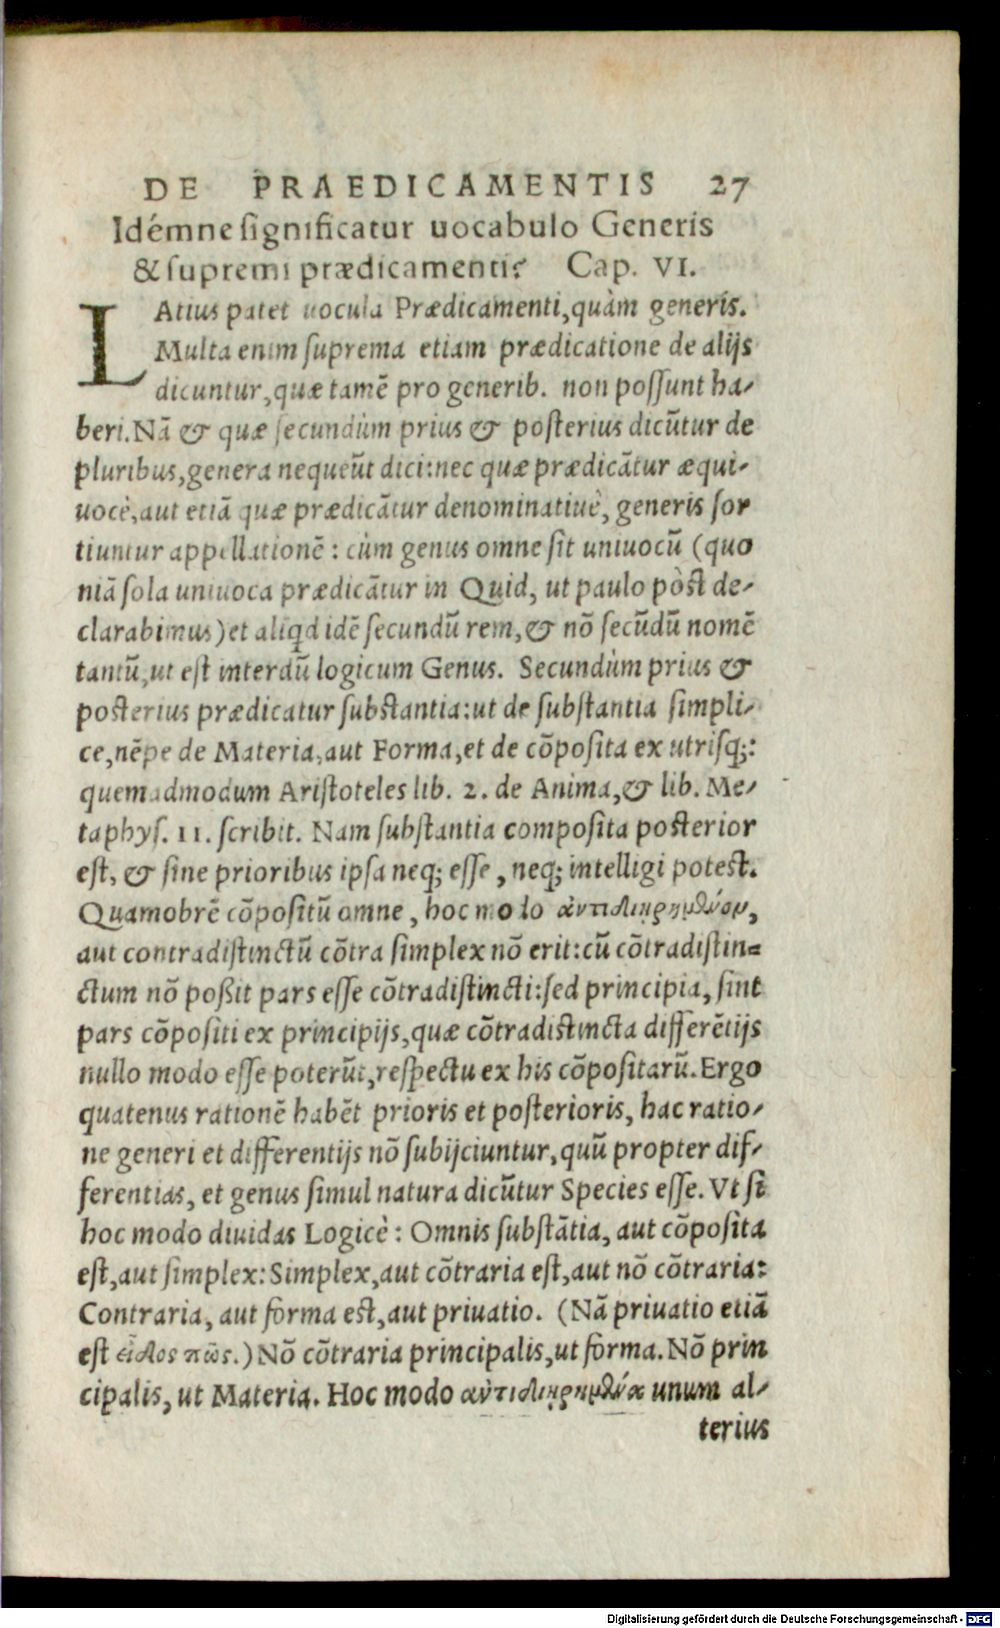 DE PRAEDICAMENTIS 27
Idémne significatur uocabulo Generis
& supremi prædicamenti? Cap. VI.
LAtius patet uocula Prædicamenti, quàm generis.
Multa enim suprema etiam prædicatione de alijs
dicuntur, quæ tamē pro generib. non possunt ha-
beri. Nā & quæ secundùm prius & posterius dicūtur de
pluribus, genera nequeūt dici: nec quæ prædicātur æqui-
uocè, aut etiā quæ prædicātur denominatiuè, generis sor
tiuntur appellationē: cùm genus omne sit uniuocū (quo
niā sola uniuoca prædicātur in Quid, ut paulo pòst de-
clarabimus) et aliqd idē secundū rem, & nō secūdū nomē
tantū, ut est interdū logicum Genus. Secundùm prius &
posterius prædicatur substantia: ut de substantia simpli-
ce, nēpe de Materia, aut Forma, et de cōposita ex utrisq;:
quemadmodum Aristoteles lib. 2. de Anima, & lib. Me-
taphys. 11. scribit. Nam substantia composita posterior
est, & sine prioribus ipsa neq; esse, neq; intelligi potest.
Quamobrē cōpositū omne, hoc modo ἀντιδιῃρημένον,
aut contradistinctū cōtra simplex nō erit: cū cōtradistin=
ctum nō poßit pars esse cōtradistincti: sed principia, sint
pars cōpositi ex principijs, quæ cōtradistincta differētijs
nullo modo esse poterūt, respectu ex his cōpositarū. Ergo
quatenus rationē habēt prioris et posterioris, hac ratio-
ne generi et differentijs nō subijciuntur, quū propter dif-
ferentias, et genus simul natura dicūtur Species esse. Vt si
hoc modo diuidas Logicè: Omnis substātia, aut cōposita
est, aut simplex: Simplex, aut cōtraria est, aut nō cōtraria:
Contraria, aut forma est, aut priuatio. (Nā priuatio etiā
est εἶδος πῶς.) Nō cōtraria principalis, ut forma. Nō prin
cipalis, ut Materia. Hoc modo ἀντιδιῃρημένα unum al-
terius
Digitalisierung gefördert durch die Deutsche Forschungsgemeinschaft - DFG